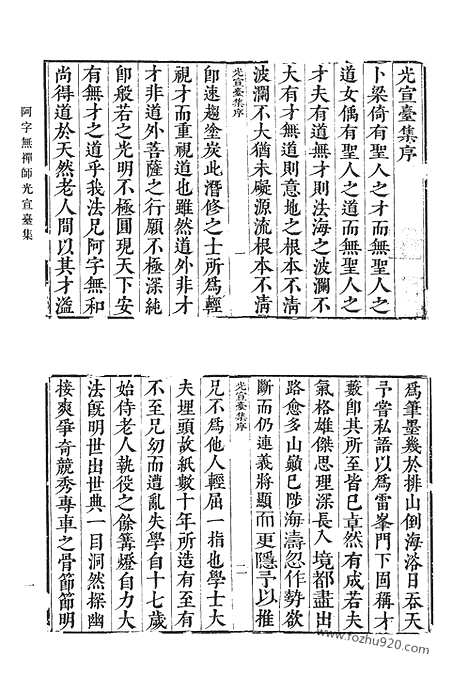 光宣臺集序
卜梁倚有聖人之才而無聖人之
道女偊有聖人之道而無聖人之
才夫有道無才則法海之波瀾不
大有才無道則意地之根本不清
波瀾不大猶未礙源流根本不清
光宣臺集序
一
卽速趨塗炭此潛修之士所爲輕
視才而重視道也雖然道外非才
才非道外菩薩之行願不極深純
卽般若之光明不極圓現天下安
有無才之道乎我法兄阿字無和
尚得道於天然老人間以其才溢
阿字無禪師光宣臺集
爲筆墨幾於排山倒海浴日吞天
予嘗私語以爲雷峯門下固稱才
藪卽其所至皆已卓然有成若夫
氣格雄傑思理深長入境都盡出
路愈多山巔已陟海濤忽作勢欲
斷而仍連義將顯而更隱予以推
光宣臺集序
二
兄不爲他人輕屈一指也學士大
夫埋頭故紙數十年所造有至有
不至兄幼而遭亂失學自十七歲
始侍老人執役之餘篝燈自力大
法旣明世出世典一目洞然探幽
接爽爭奇競秀專車之骨節節明
一
www.fozhu920.com